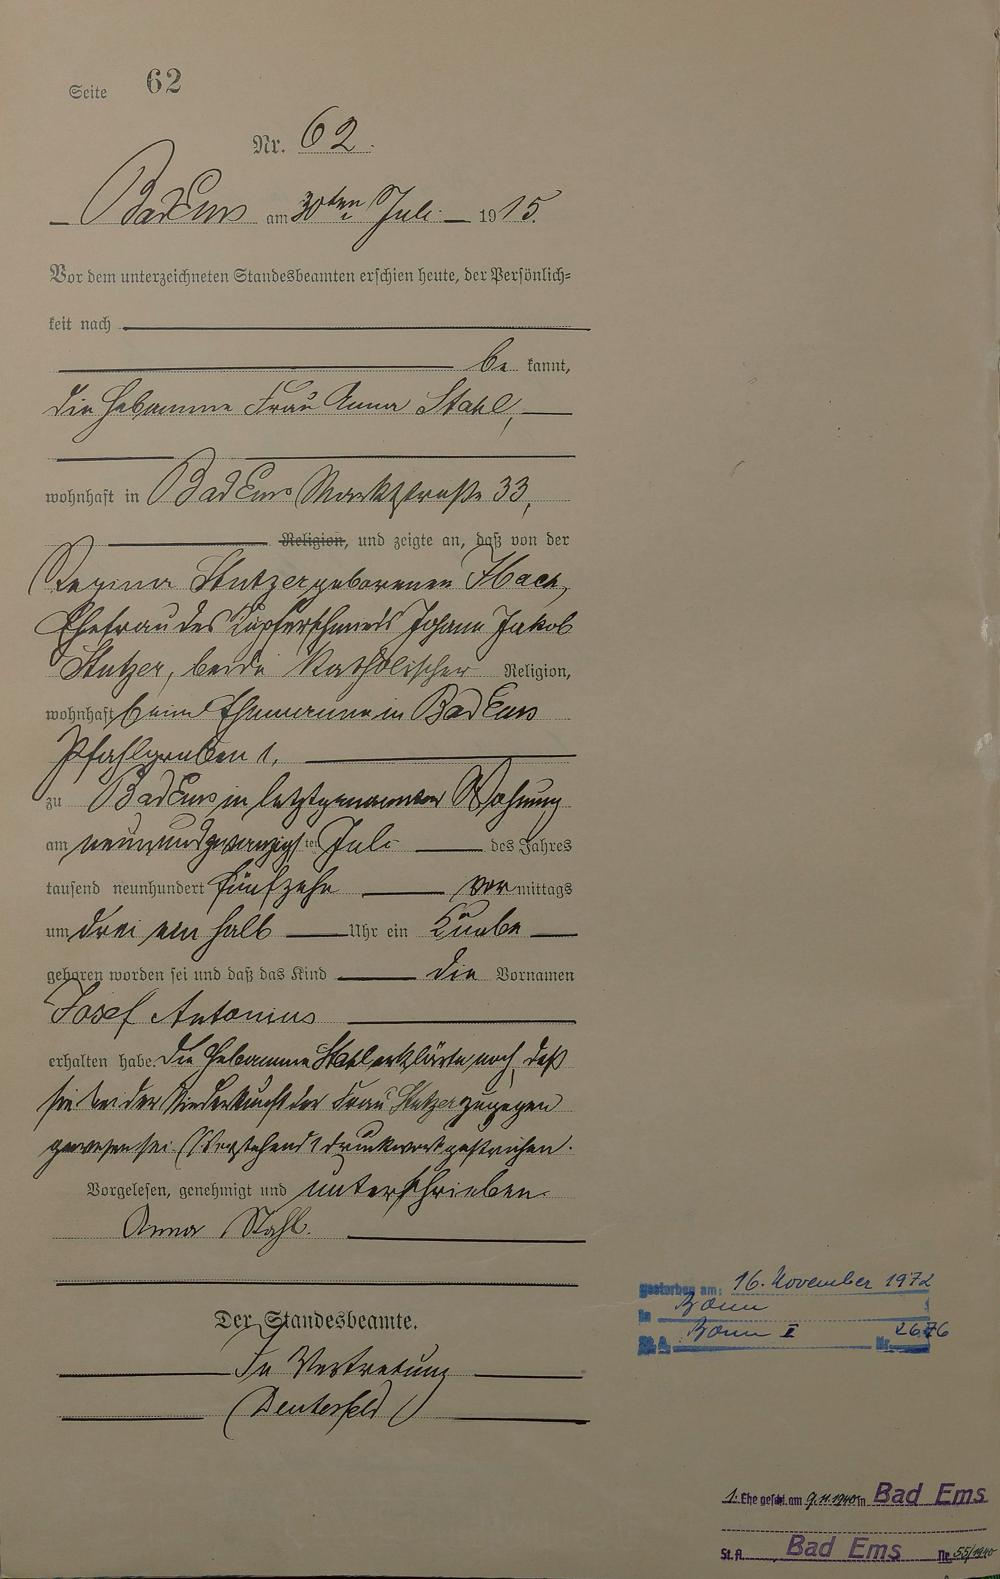 Seite 62
Nr. 62.
Bad Ems am 30ten Juli 1915.
Vor dem unterzeichneten Standesbeamten erschien heute, der Persönlich=
keit nach
be kannt,
die Hebamme Frau Anna Stahl,
wohnhaft in Bad Ems Marktstraße 33,
Religion, und zeigte an, daß von der
Regina Stutzer geborenen
Ehefrau des Kupferschmieds Johann Jakob
Stutzer, beide katholischer Religion,
wohnhaft beim Ehemanne in Bad Ems
Pfahlgraben 1,
zu Bad Ems in letztgenannter Wohnung
am neunundzwanzigsten Juli des Jahres
tausend neunhundert fünfzehn vor mittags
um drei ein halb Uhr ein Knabe
geboren worden sei und daß das Kind die Vornamen
Josef Antonius
erhalten habe. Die Hebamme Stahl erklärte noch, daß
sie bei der Niederkunft der Frau Stutzer zugegen
gewesen sei. (Vorstehend 1 Druckwort gestrichen.
Vorgelesen, genehmigt und unterschrieben
Anna Stahl.
Der Standesbeamte.
In Vertretung
gestorben am: 16. November 1972
in Bonn
St.A. Bonn I Nr. 2676
1. Ehe geschl. am 9.11.1940 in Bad Ems
St.A. Bad Ems Nr. 55/1940